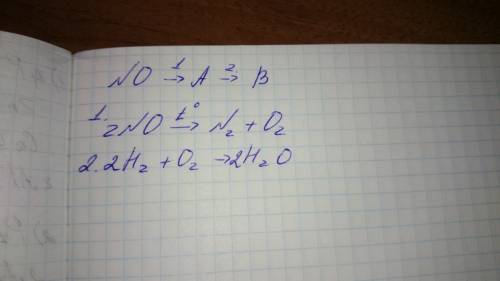 NO →¹ A →² B
1. 2NO →t° N₂ + O₂
2. 2H₂ + O₂ → 2H₂O